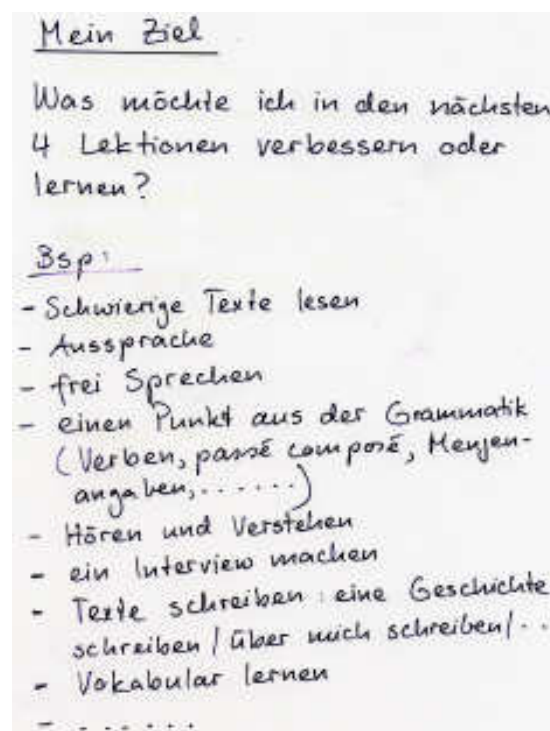 Mein Ziel
Was möchte ich in den nächsten
4 Lektionen verbessern oder
lernen?
Bsp:
- Schwierige Texte lesen
- Aussprache
- frei Sprechen
- einen Punkt aus der Grammatik
(Verben, passé composé, Mengen-
angaben,.......)
- Hören und Verstehen
- ein Interview machen
- Texte schreiben: eine Geschichte
schreiben / über mich schreiben/..
- Vokabular lernen
- .......